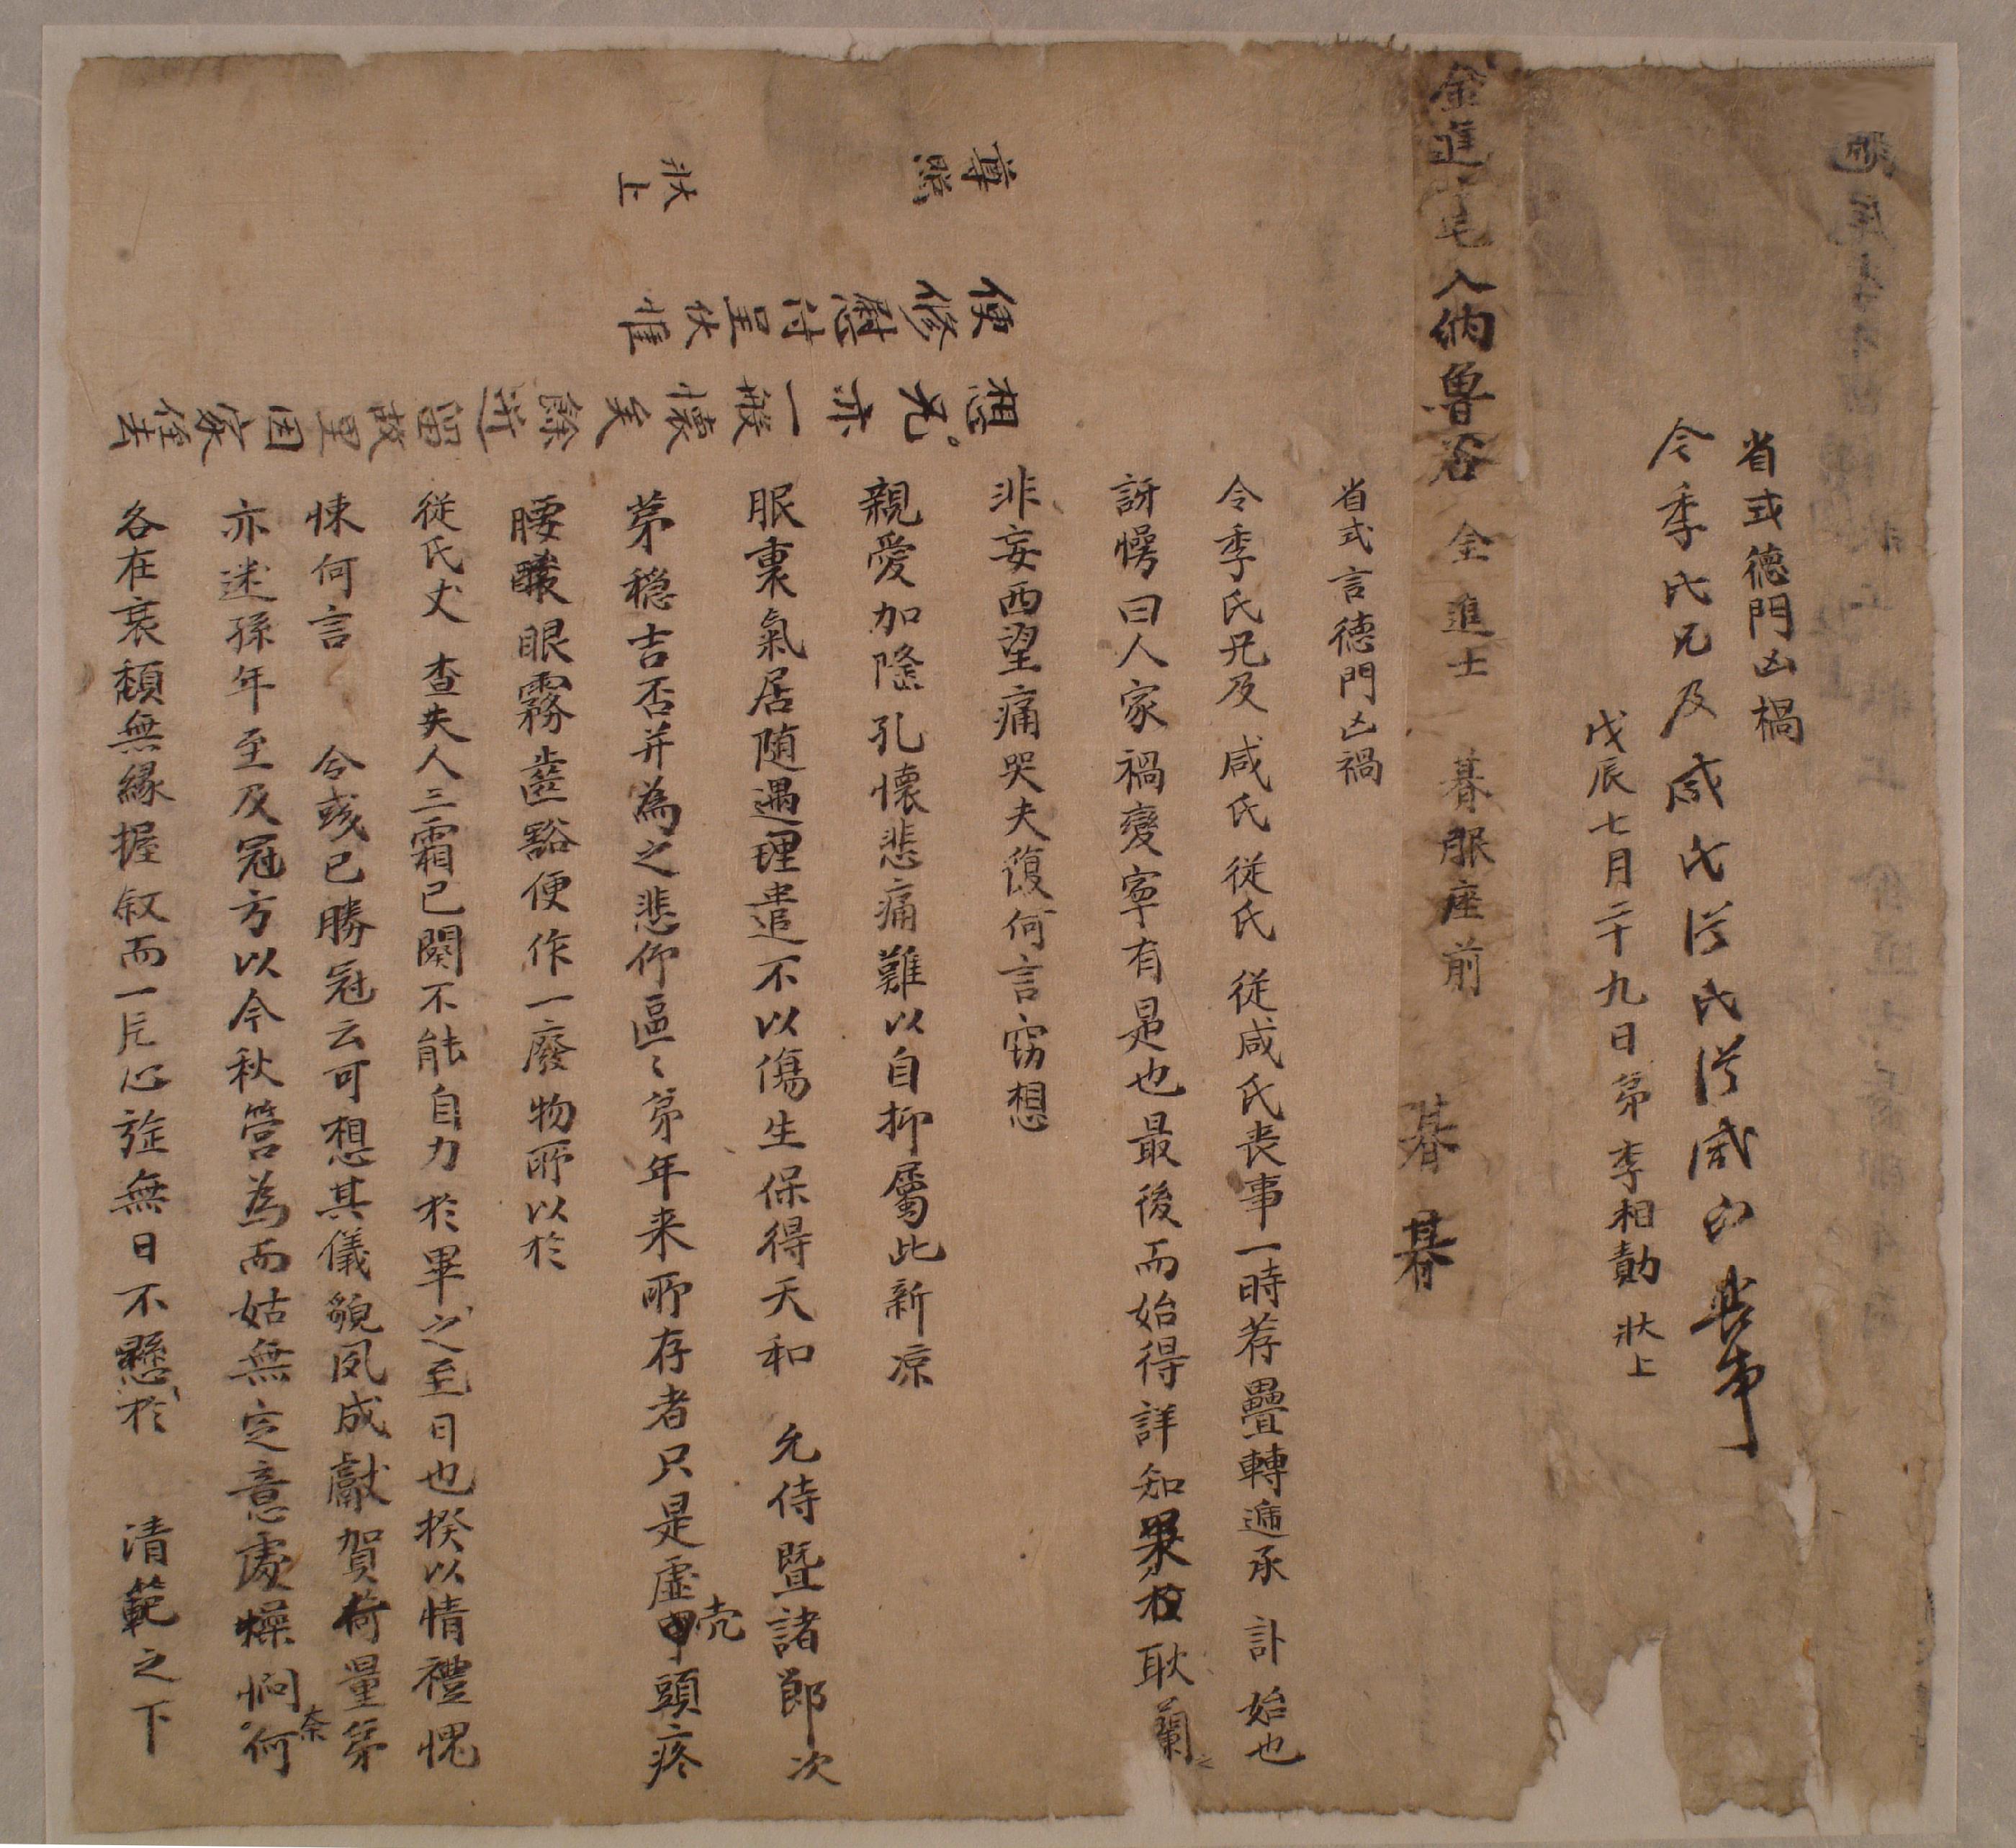 省式德門凶禍
令季氏兄及咸氏從氏從咸氏喪事
戊辰七月二十九日弟李相勛 狀上
金進士宅入納魯谷
金進士 朞服座前
朞朞
省式言德門凶禍
令季氏兄及咸氏從氏從咸氏喪事一時荐疊轉遞承訃始也
訝愕曰人家禍變寧有是也最後而始得詳知果校耿蘭之
非妄西望痛哭夫復何言竊想
親愛加隆孔懷悲痛難以自抑屬此新凉
服裏氣居随遇理遣不以傷生保得天和 允侍曁諸郞次
苐穩吉否并爲之悲仰區〻弟年来所存者只是虛殼頭疼
腰酸眼霧齒豁便作一廢物所以於
從氏丈 查夫人三霜已闋不能自力於畢之至日也揆以情禮愧
悚何言 令彧已勝冠云可想其儀貌夙成獻賀荷量弟
亦迷孫年至及冠方以今秋營爲而姑無定意處燥悶奈何
各在衰頹無緣握叙而一片心旌無日不懸於 清範之下
想兄亦一般懷矣餘近留故里因家侄去
便修慰付呈伏惟
尊照
狀上